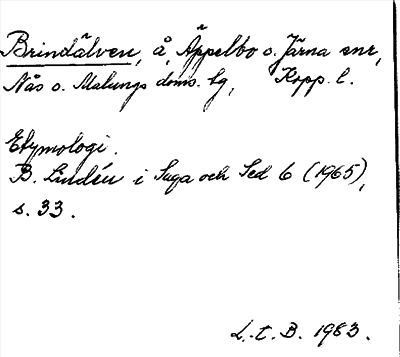 Brindälven, å, Äppelbo o. Järna snr,
Nås o. Malungs doms. tg, Kopp. l.
Etymologi.
B. Lindén i Saga och Sed 6 (1965),
s. 33.
L. t. B. 1983.